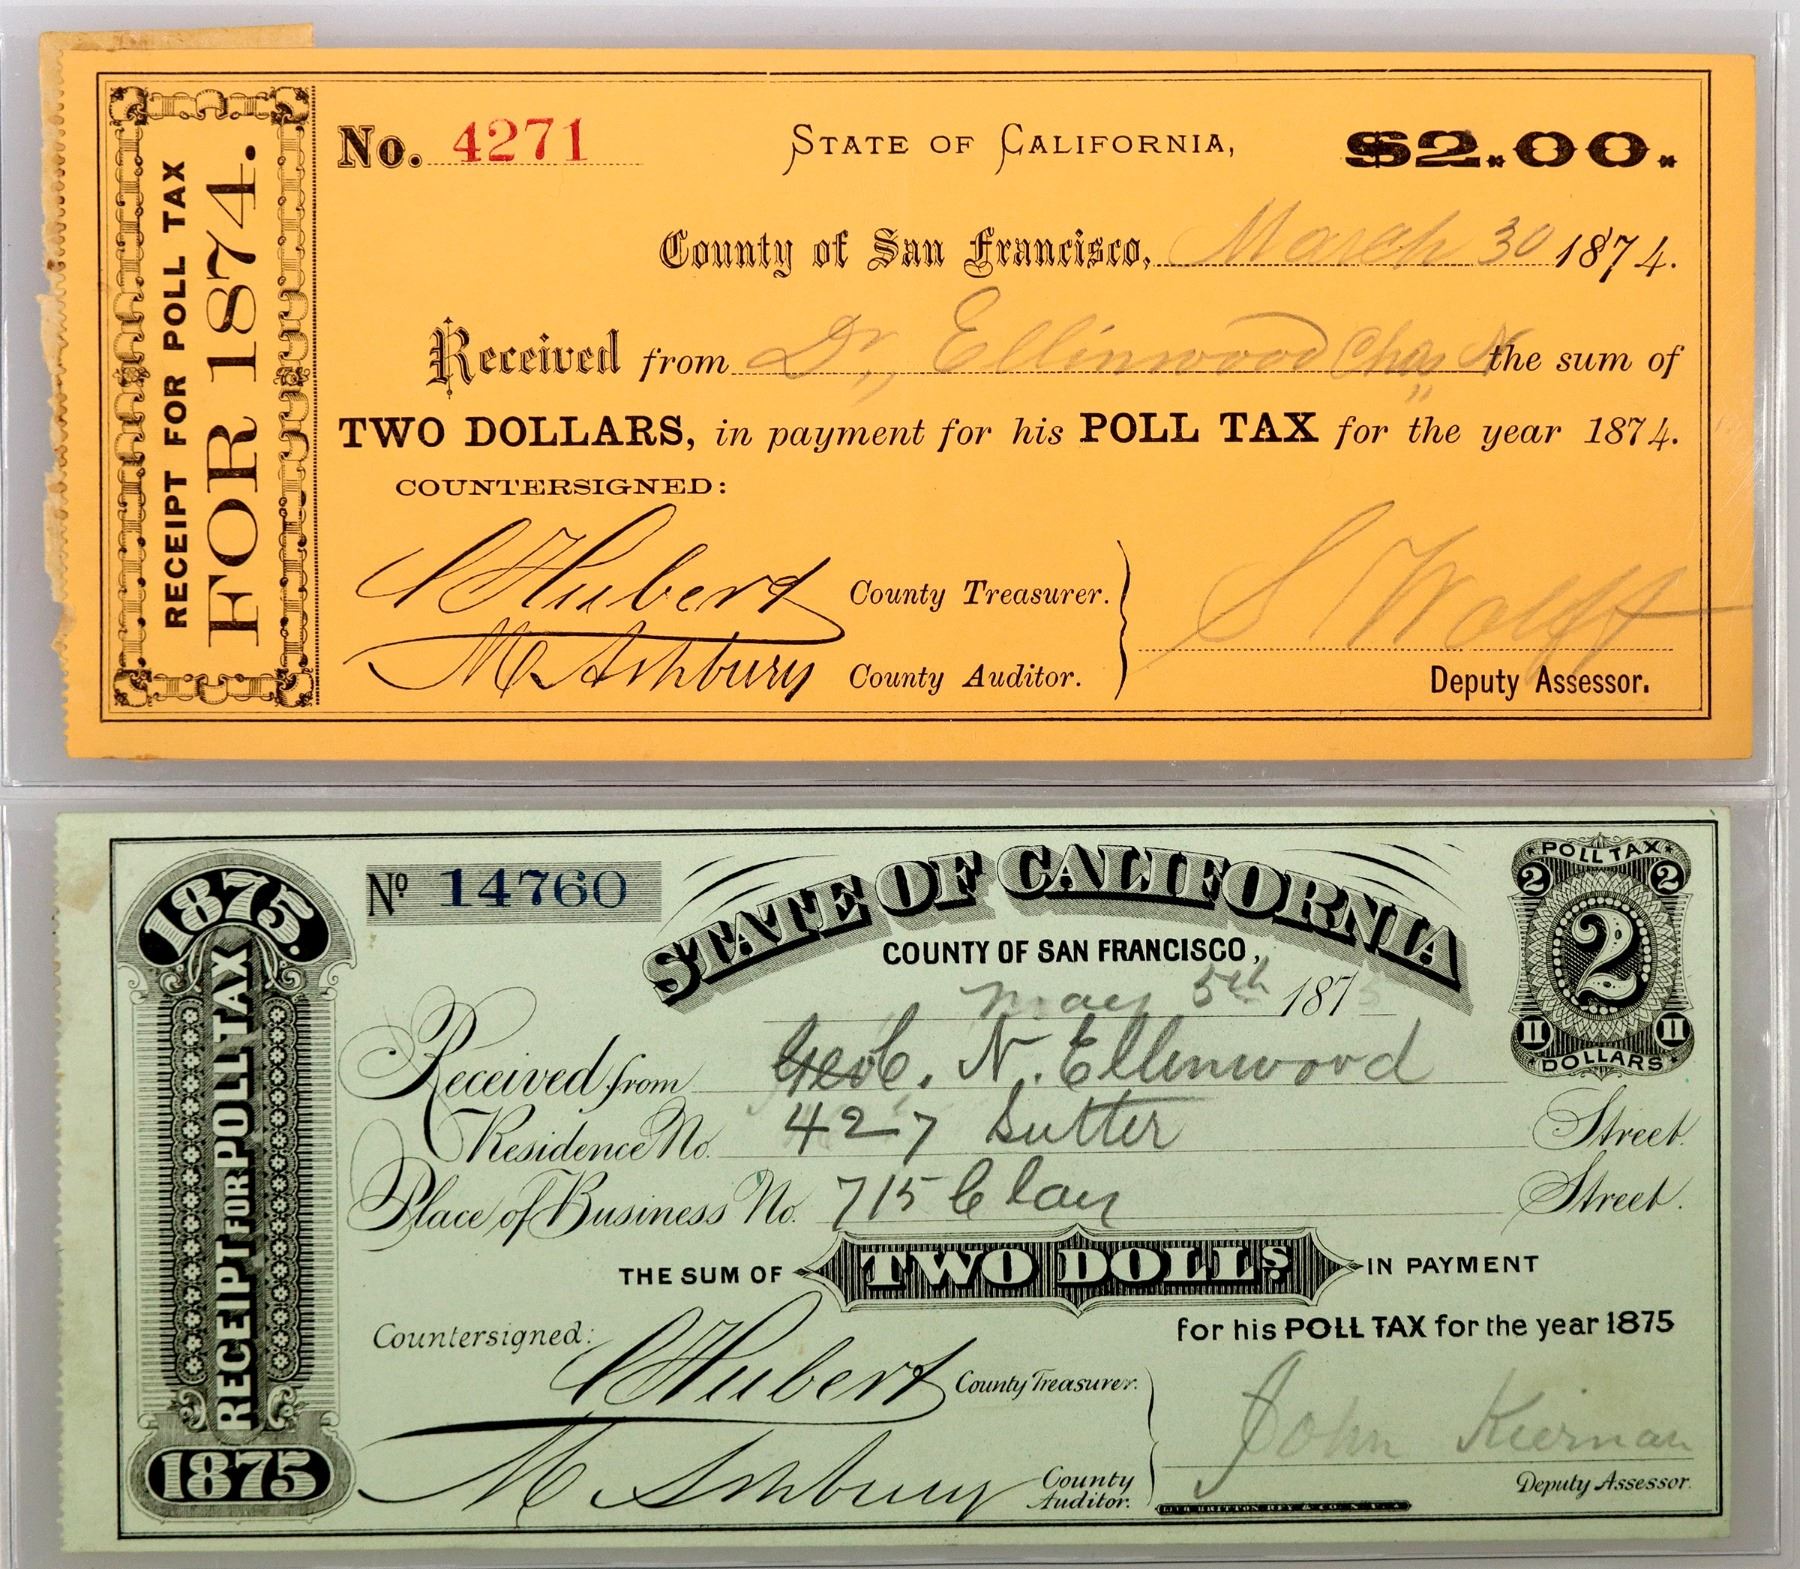 RECEIPT FOR POLL TAX
FOR 1874.
No. 4271 STATE OF CALIFORNIA, $2.00.
County of San Francisco, March 30 1874.
Received from Dr. Ellinwood Chas N the sum of
TWO DOLLARS, in payment for his POLL TAX for the year 1874.
COUNTERSIGNED:
C Hubert County Treasurer.
M Ashbury County Auditor.
S Wolff
Deputy Assessor.
1875.
RECEIPT FOR POLL TAX
1875
No 14760
STATE OF CALIFORNIA
COUNTY OF SAN FRANCISCO,
POLL TAX
2 2
2
II II
DOLLARS
May 5th 1875
Received from C. N. Ellinwood
Residence No. 427 Sutter Street.
Place of Business No. 715 Clay Street.
THE SUM OF TWO DOLLS IN PAYMENT
for his POLL TAX for the year 1875
Countersigned:
C Hubert County Treasurer.
M Ashbury County Auditor.
John Kiernan
Deputy Assessor.
LITH BRITTON REY & CO.